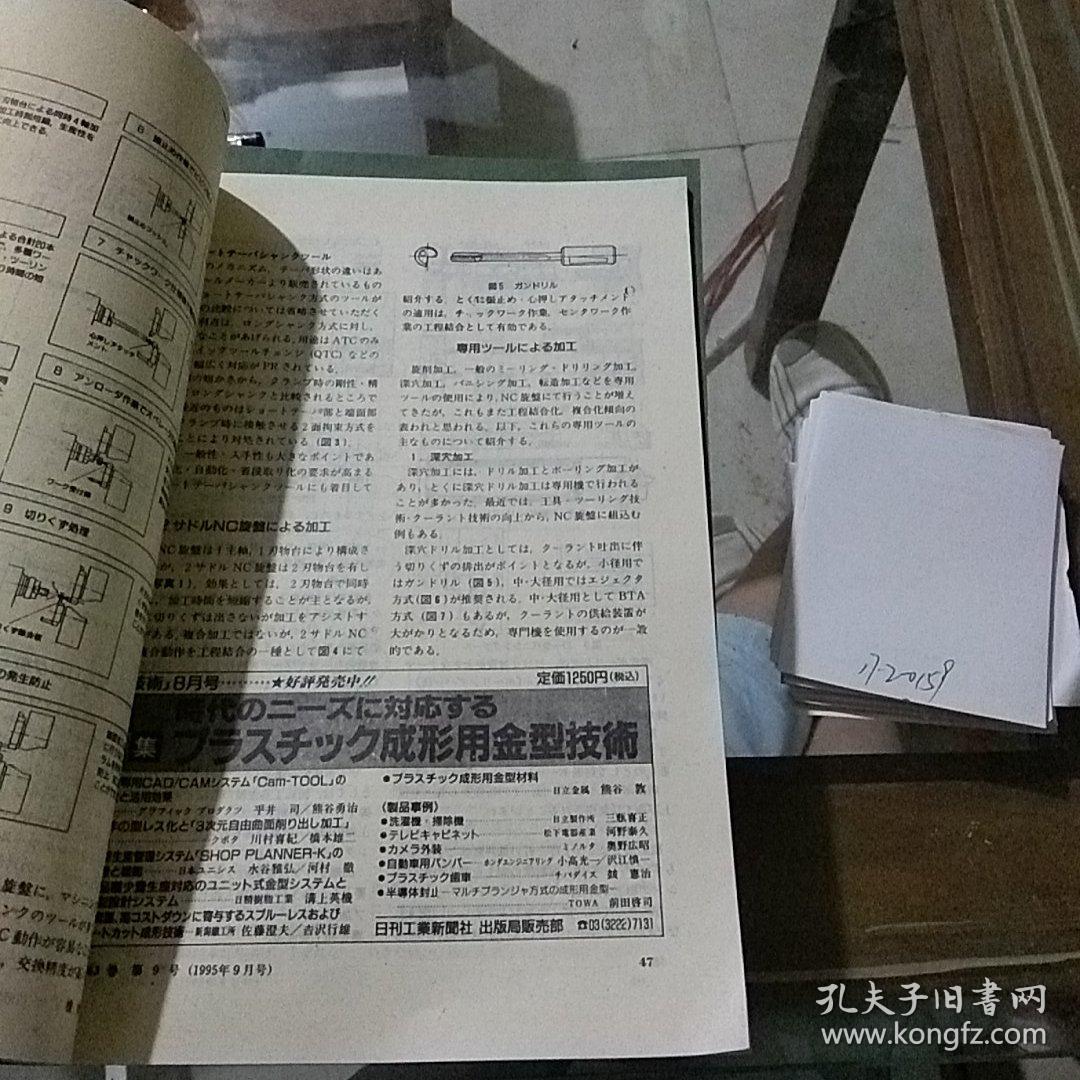 刃物台による同時4軸加
加工時間短縮，生産性を
に向上できる．
よる合計20本
6 振止め作業でロン
7 チャックワーク
心押しアタッチ
メント
8 アンローダ作業でスペ
ワーク受け
9 切りくず処理
の発生防止
旋盤に，マシニン
ンクのツールが
C動作が容易な
，交換精度が
ートテーパシャンクツール
のメカニズム，テーパ形状の違いはあ
ールメーカーより販売されているもの
ョートテーパシャンク方式のツールが
の比較については省略させていただく
利点は，ロングシャンク方式に対し，
なことがあげられる．用途はATCのみ
イックツールチェンジ(QTC)などの
幅広く対応がPRされている．
の短かさから，クランプ時の剛性・精
ロングシャンクと比較されるところで
近のものはショートテーパ部と端面部
ランプ時に接触させる2面拘束方式を
ことにより対処されている（図3）．
，一般性・入手性も大きなポイントであ
化・自動化・省段取り化の要求が高まる
ートテーパシャンクツールにも着目して
2サドルNC旋盤による加工
NC旋盤は1主軸，1刃物台により構成さ
が，2サドルNC旋盤は2刃物台を有し
（写真1）．効果としては，2刃物台で同時
，加工時間を短縮することが主となるが，
に切りくずは出さないが加工をアシストす
がある．複合加工ではないが，2サドルNC
複合動作を工程結合の一種として図4にて
図5 ガンドリル
紹介する．とくに振止め・心押しアタッチメント
の適用は，チャックワーク作業，センタワーク作
業の工程結合として有効である．
専用ツールによる加工
旋削加工，一般のミーリング・ドリリング加工，
深穴加工，バニシング加工，転造加工などを専用
ツールの使用により，NC旋盤にて行うことが増え
てきたが，これもまた工程結合化，複合化傾向の
表われと思われる．以下，これらの専用ツールの
主なものについて紹介する．
1．深穴加工
深穴加工には，ドリル加工とボーリング加工が
あり，とくに深穴ドリル加工は専用機で行われる
ことが多かった．最近では，工具・ツーリング技
術・クーラント技術の向上から，NC旋盤に組込む
例もある．
深穴ドリル加工としては，クーラント吐出に伴
う切りくずの排出がポイントとなるが，小径用で
はガンドリル（図5），中・大径用ではエジェクタ
方式（図6）が推奨される．中・大径用としてBTA
方式（図7）もあるが，クーラントの供給装置が
大がかりとなるため，専門機を使用するのが一般
的である．
技術」8月号………★好評発売中!! 定価1250円（税込）
時代のニーズに対応する
集 プラスチック成形用金型技術
用CAD/CAMシステム「Cam-TOOL」の
と活用効果
グラフィック プロダクツ 平井 司／熊谷勇治
の型レス化と「3次元自由曲面削り出し加工」
クボタ 川村喜紀／橋本雄二
生産管理システム「SHOP PLANNER-K」の
日本ユニシス 水谷雅弘／河村 徹
少量生産対応のユニット式金型システムと
設計システム 日精樹脂工業 溝上英機
コストダウンに寄与するスプルーレスおよび
ートカット成形技術 新潟鐵工所 佐藤澄夫／吉沢行雄
●プラスチック成形用金型材料
日立金属 熊谷 敦
〈製品事例〉
●洗濯機・掃除機 日立製作所 三瓶喜正
●テレビキャビネット 松下電器産業 河野泰久
●カメラ外装 ミノルタ 奥野広昭
●自動車用バンパー ホンダエンジニアリング 小高光一／沢江慎一
●プラスチック歯車 チバダイス 憲治
●半導体封止―マルチプランジャ方式の成形用金型―
TOWA 前田啓司
日刊工業新聞社 出版局販売部 ☎03(3222)7131
巻 第9号（1995年9月号）
47
17-20159
孔夫子旧書网
www.kongfz.com